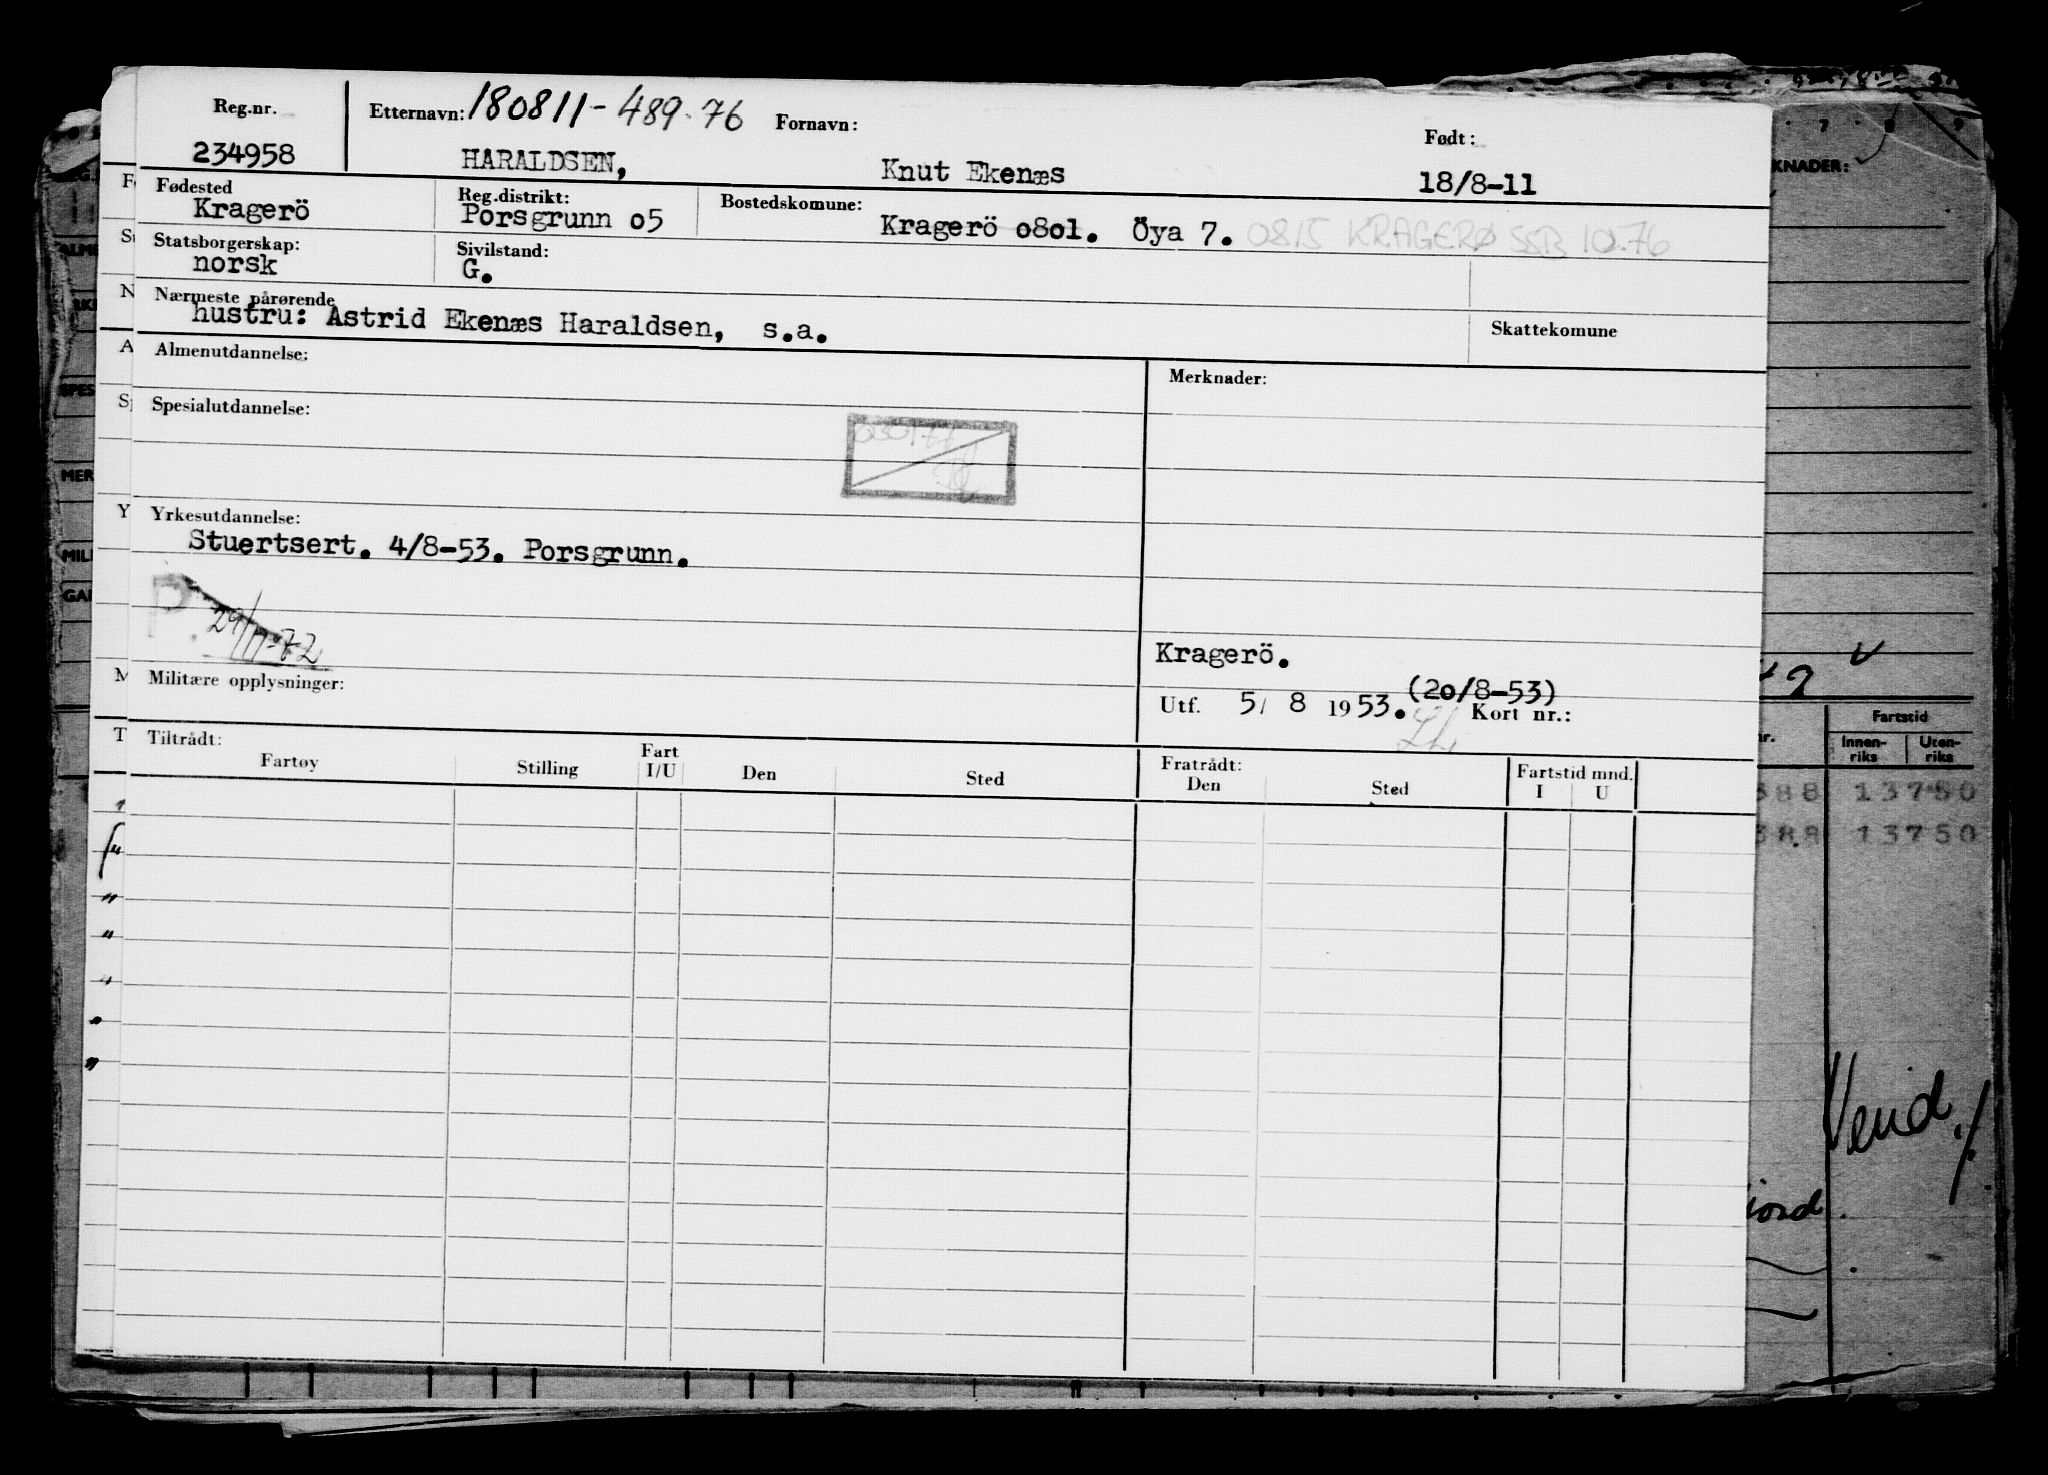 Reg.nr. Etternavn: 180811-489.76 Fornavn: Født:
234958 HARALDSEN, Knut Ekenæs 18/8-11
Fødested Reg.distrikt: Bostedskomune:
Kragerö Porsgrunn o5 Kragerö o8o1. Öya 7. 0815 KRAGERØ SSB 10.76
Statsborgerskap: Sivilstand:
norsk G.
Nærmeste pårørende Skattekomune
hustru: Astrid Ekenæs Haraldsen, s.a.
Almenutdannelse: Merknader:
Spesialutdannelse:
Yrkesutdannelse:
Stuertsert. 4/8-53. Porsgrunn.
P. 29/11-72
Kragerö.
Militære opplysninger:
(2o/8-53)
Utf. 5/ 8 1953. Kort nr.:
Tiltrådt: Fratrådt:
Fartøy Stilling Fart I/U Den Sted Den Sted Fartstid mnd. I U
KNADER:
Fartstid
Innen-riks Uten-riks
388 13750
389 13750
Vend!